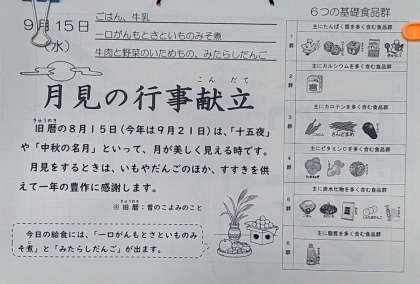 9月15日
(水)
ごはん、牛乳
一口がんもとさといものみそ煮
牛肉と野菜のいためもの、みたらしだんご
月見の行事献立
こんだて
旧暦の8月15日(今年は9月21日)は、「十五夜」
きゅうれき
や「中秋の名月」といって、月が美しく見える時です。
月見をするときは、いもやだんごのほか、すすきを供
えて一年の豊作に感謝します。
※旧暦:昔のこよみのこと
きゅうれき
今日の給食には、「一口がんもとさといものみ
そ煮」と「みたらしだんご」が出ます。
6つの基礎食品群
主にたんぱく質を多く含む食品群
1群
主にカルシウムを多く含む食品群
2群
主にカロテンを多く含む食品群
3群
主にビタミンCを多く含む食品群
4群
主に炭水化物を多く含む食品群
5群
主に脂質を多く含む食品群
6群